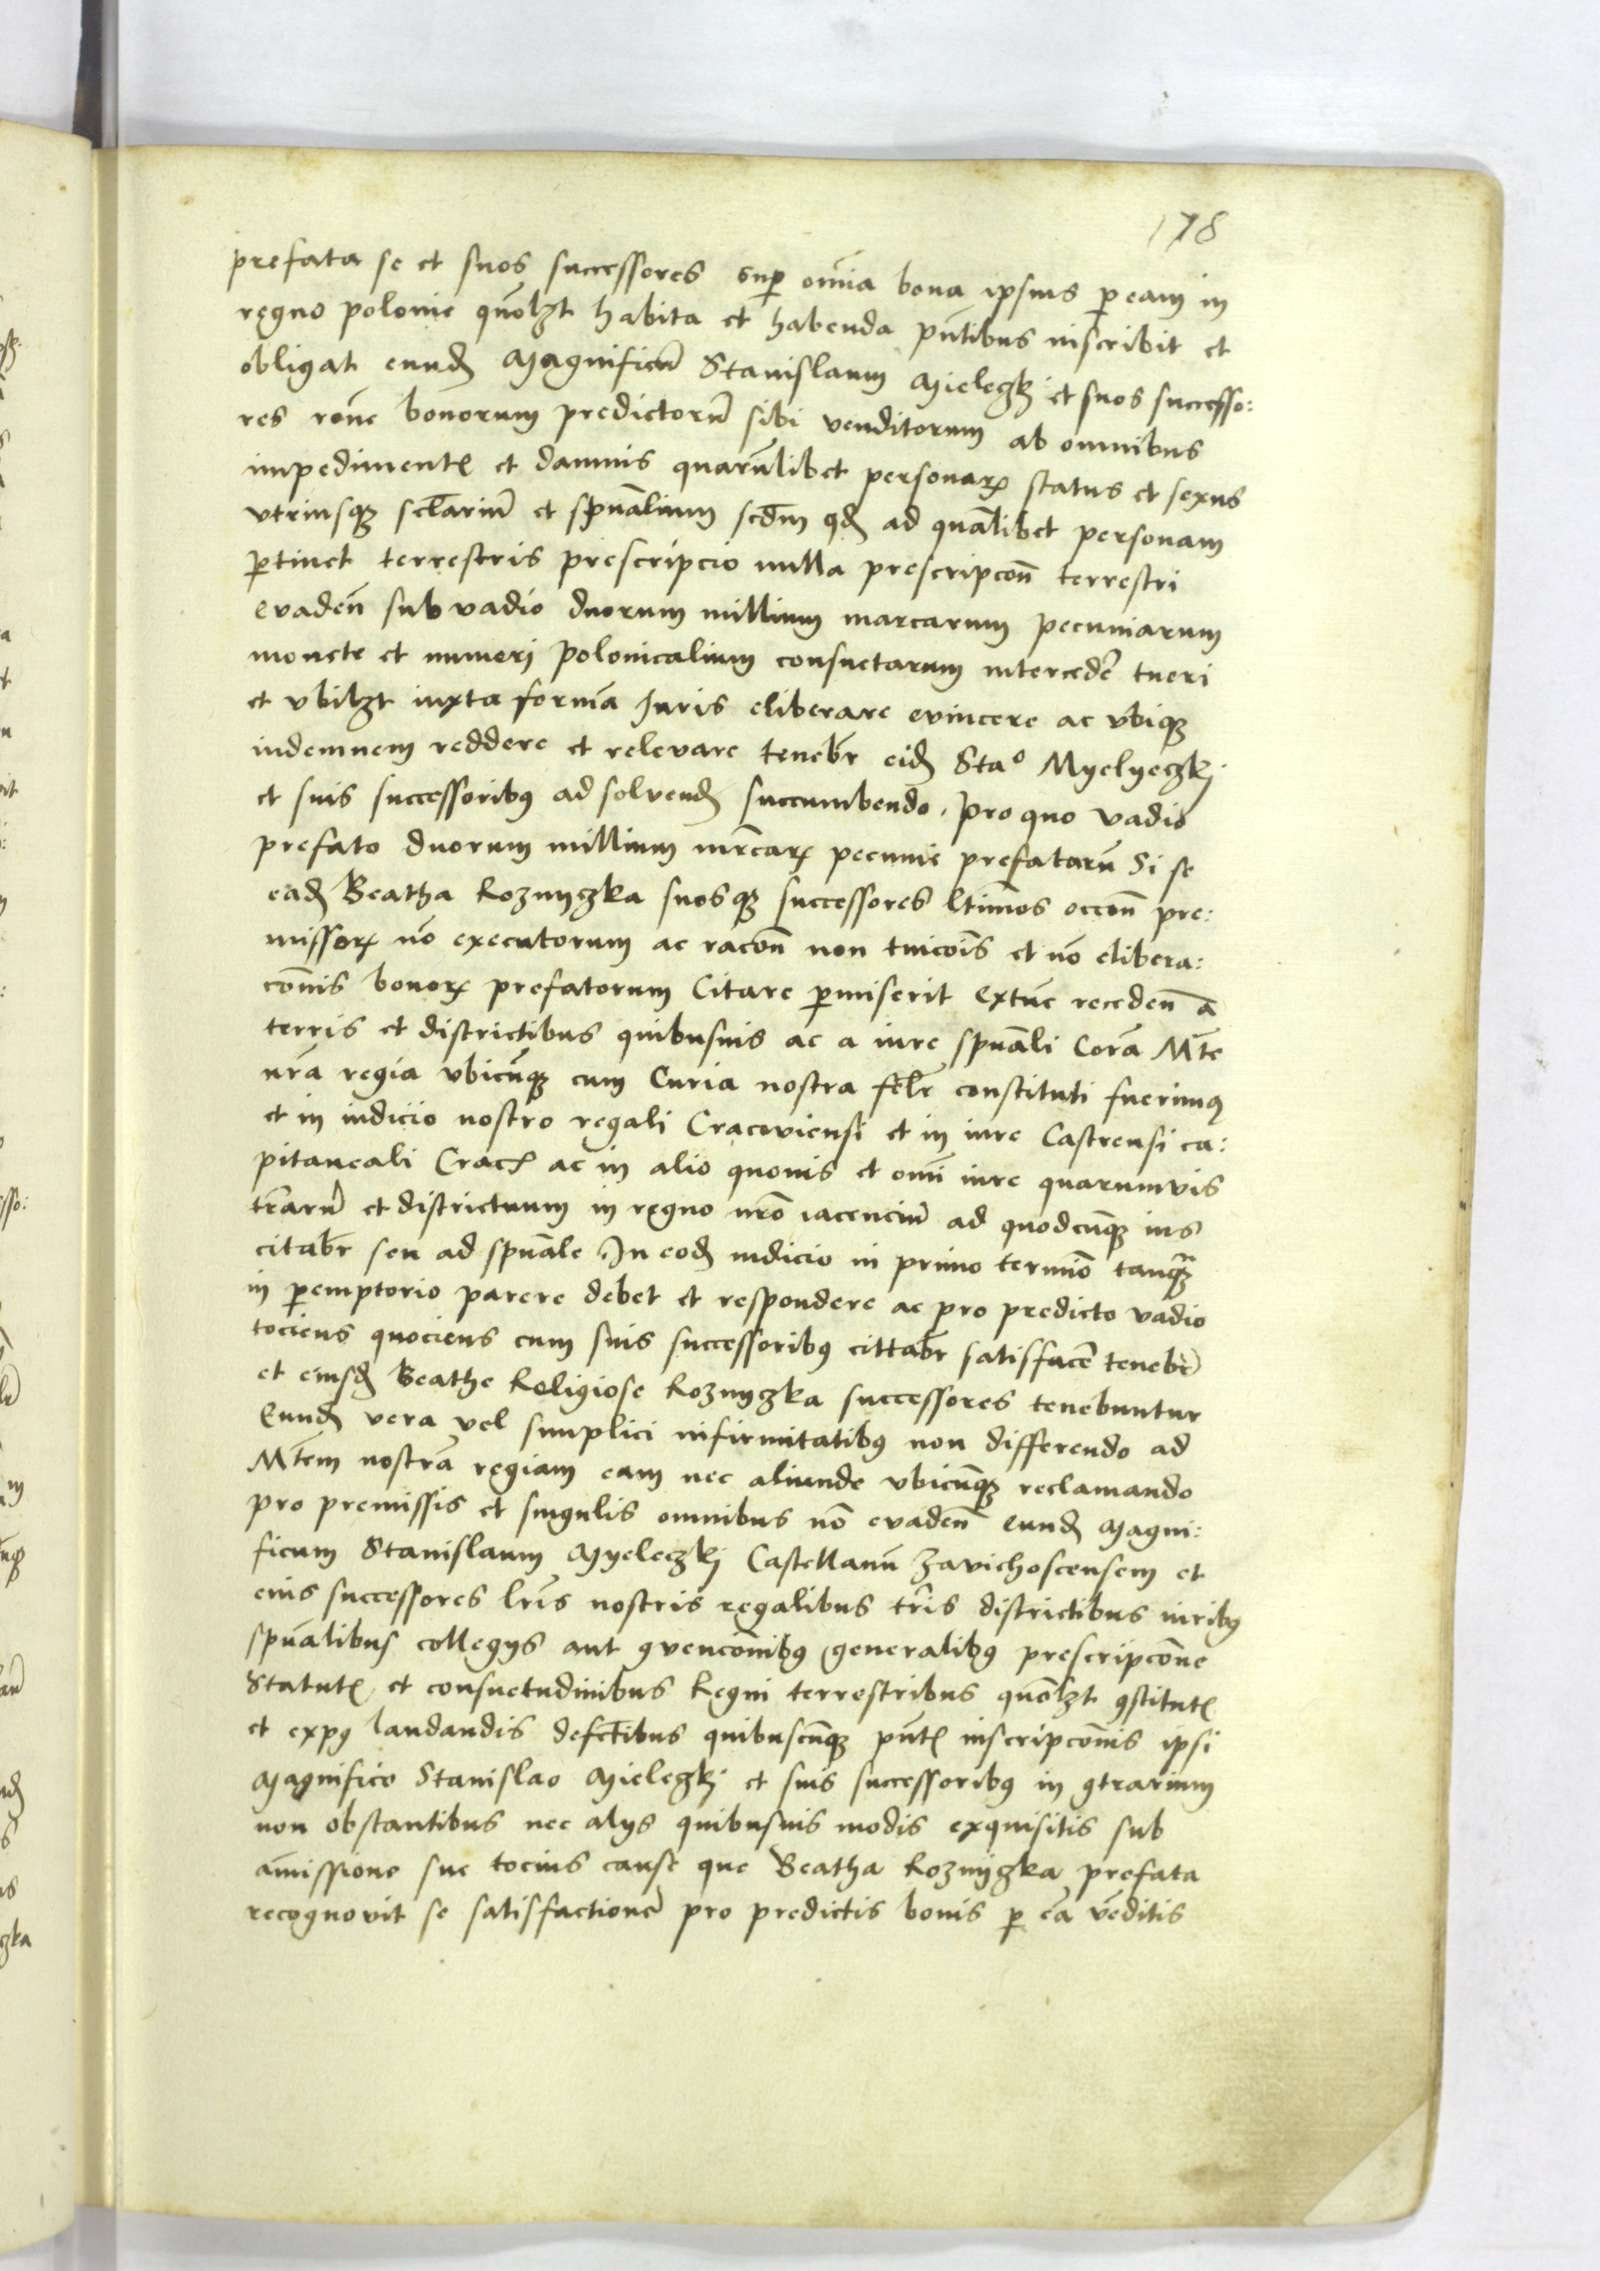 178
prefata se et suos successores sup om̄ia bona ipsius p eam in
regno polonie quōlzt habita et habenda pn̄tibus inscribit et
obligat eund Magnificū Stanislaum Mieleczkj et suos successo:
res rōne bonorum predictorū sibi venditorum ab omnibus
impediment et damnis quarūlibet personar status et sexus
vtriusq scl̄ariū et spūalium scdm qd ad quālibet personam
ptinet terrestris prescripcio nulla prescripcōn terrestri
evadeñ sub vadio duorum millium marcarum pecuniarum
monete et numeri polonicalium consuetarum intercedē tueri
et vbilzt iuxta formā Juris eliberare evincere ac vbiq
indemnem reddere et relevare tenebr̄ eid Stao Myelyeczkj
et suis successoribus ad solvend succumbendo. pro quo vadio
prefato duorum millium mr̄car pecunie prefatarū Si se
ead Beatha Roznyczka suosq successores ltimos occōn pre:
missor nō executorum ac racōn non tuicōis et nō elibera:
cōnis bonor prefatorum Citare pmiserit extūc recedeñ a
terris et districtibus quibusuis ac a iure spūali Corā Mte
nrā regia vbicūq cum Curia nostra felr̄ constituti fuerimus
et in iudicio nostro regali Cracoviensi et in iure Castrensi ca:
pitaneali Crac ac in alio quouis et om̄i iure quarumvis
trr̄arū et districtuum in regno nrō iacenciū ad quodcūq ius
citabr̄ seu ad spūale In eod iudicio in primo termīo tanq
in pemptorio parere debet et respondere ac pro predicto vadio
tociens quociens cum suis successoribus cittabr̄ satisfacē tenebr̄
et eiusd Beathe Religiose Roznyczka successores tenebuntur
Eund vera vel simplici infirmitatibus non differendo ad
Mtem nostrā regiam eam nec aliunde vbicūq reclamando
pro premissis et singulis omnibus nō evadeñ eund Magni:
ficum Stanislaum Myeleczkj Castellanū Zavichoscensem et
eius successores lrīs nostris regalibus trīs districtibus iuribus
spūalibus collegys aut 9vencōnibus generalibus prescripcōne
Statut et consuetudinibus Regni terrestribus quōlzt 9stitut
et exp9 laudandis defctibus quibuscūq pn̄t inscripcōnis ipsi
Magnifico Stanislao Mieleczkj et suis successoribus in 9trarium
non obstantibus nec alys quibusuis modis exquisitis sub
āmissione sue tocius cause que Beatha Roznyczka prefata
recognovit se satisfactionē pro predictis bonis p eā vēditis